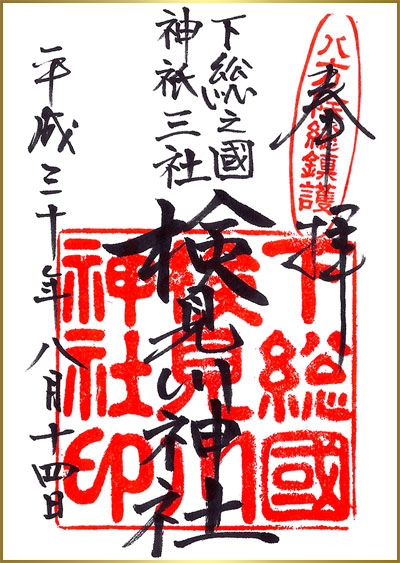 奉拝
八方除総鎮護
下総之國
神祇三社
検見川神社
下総國
検見川
神社印
平成三十年八月十四日